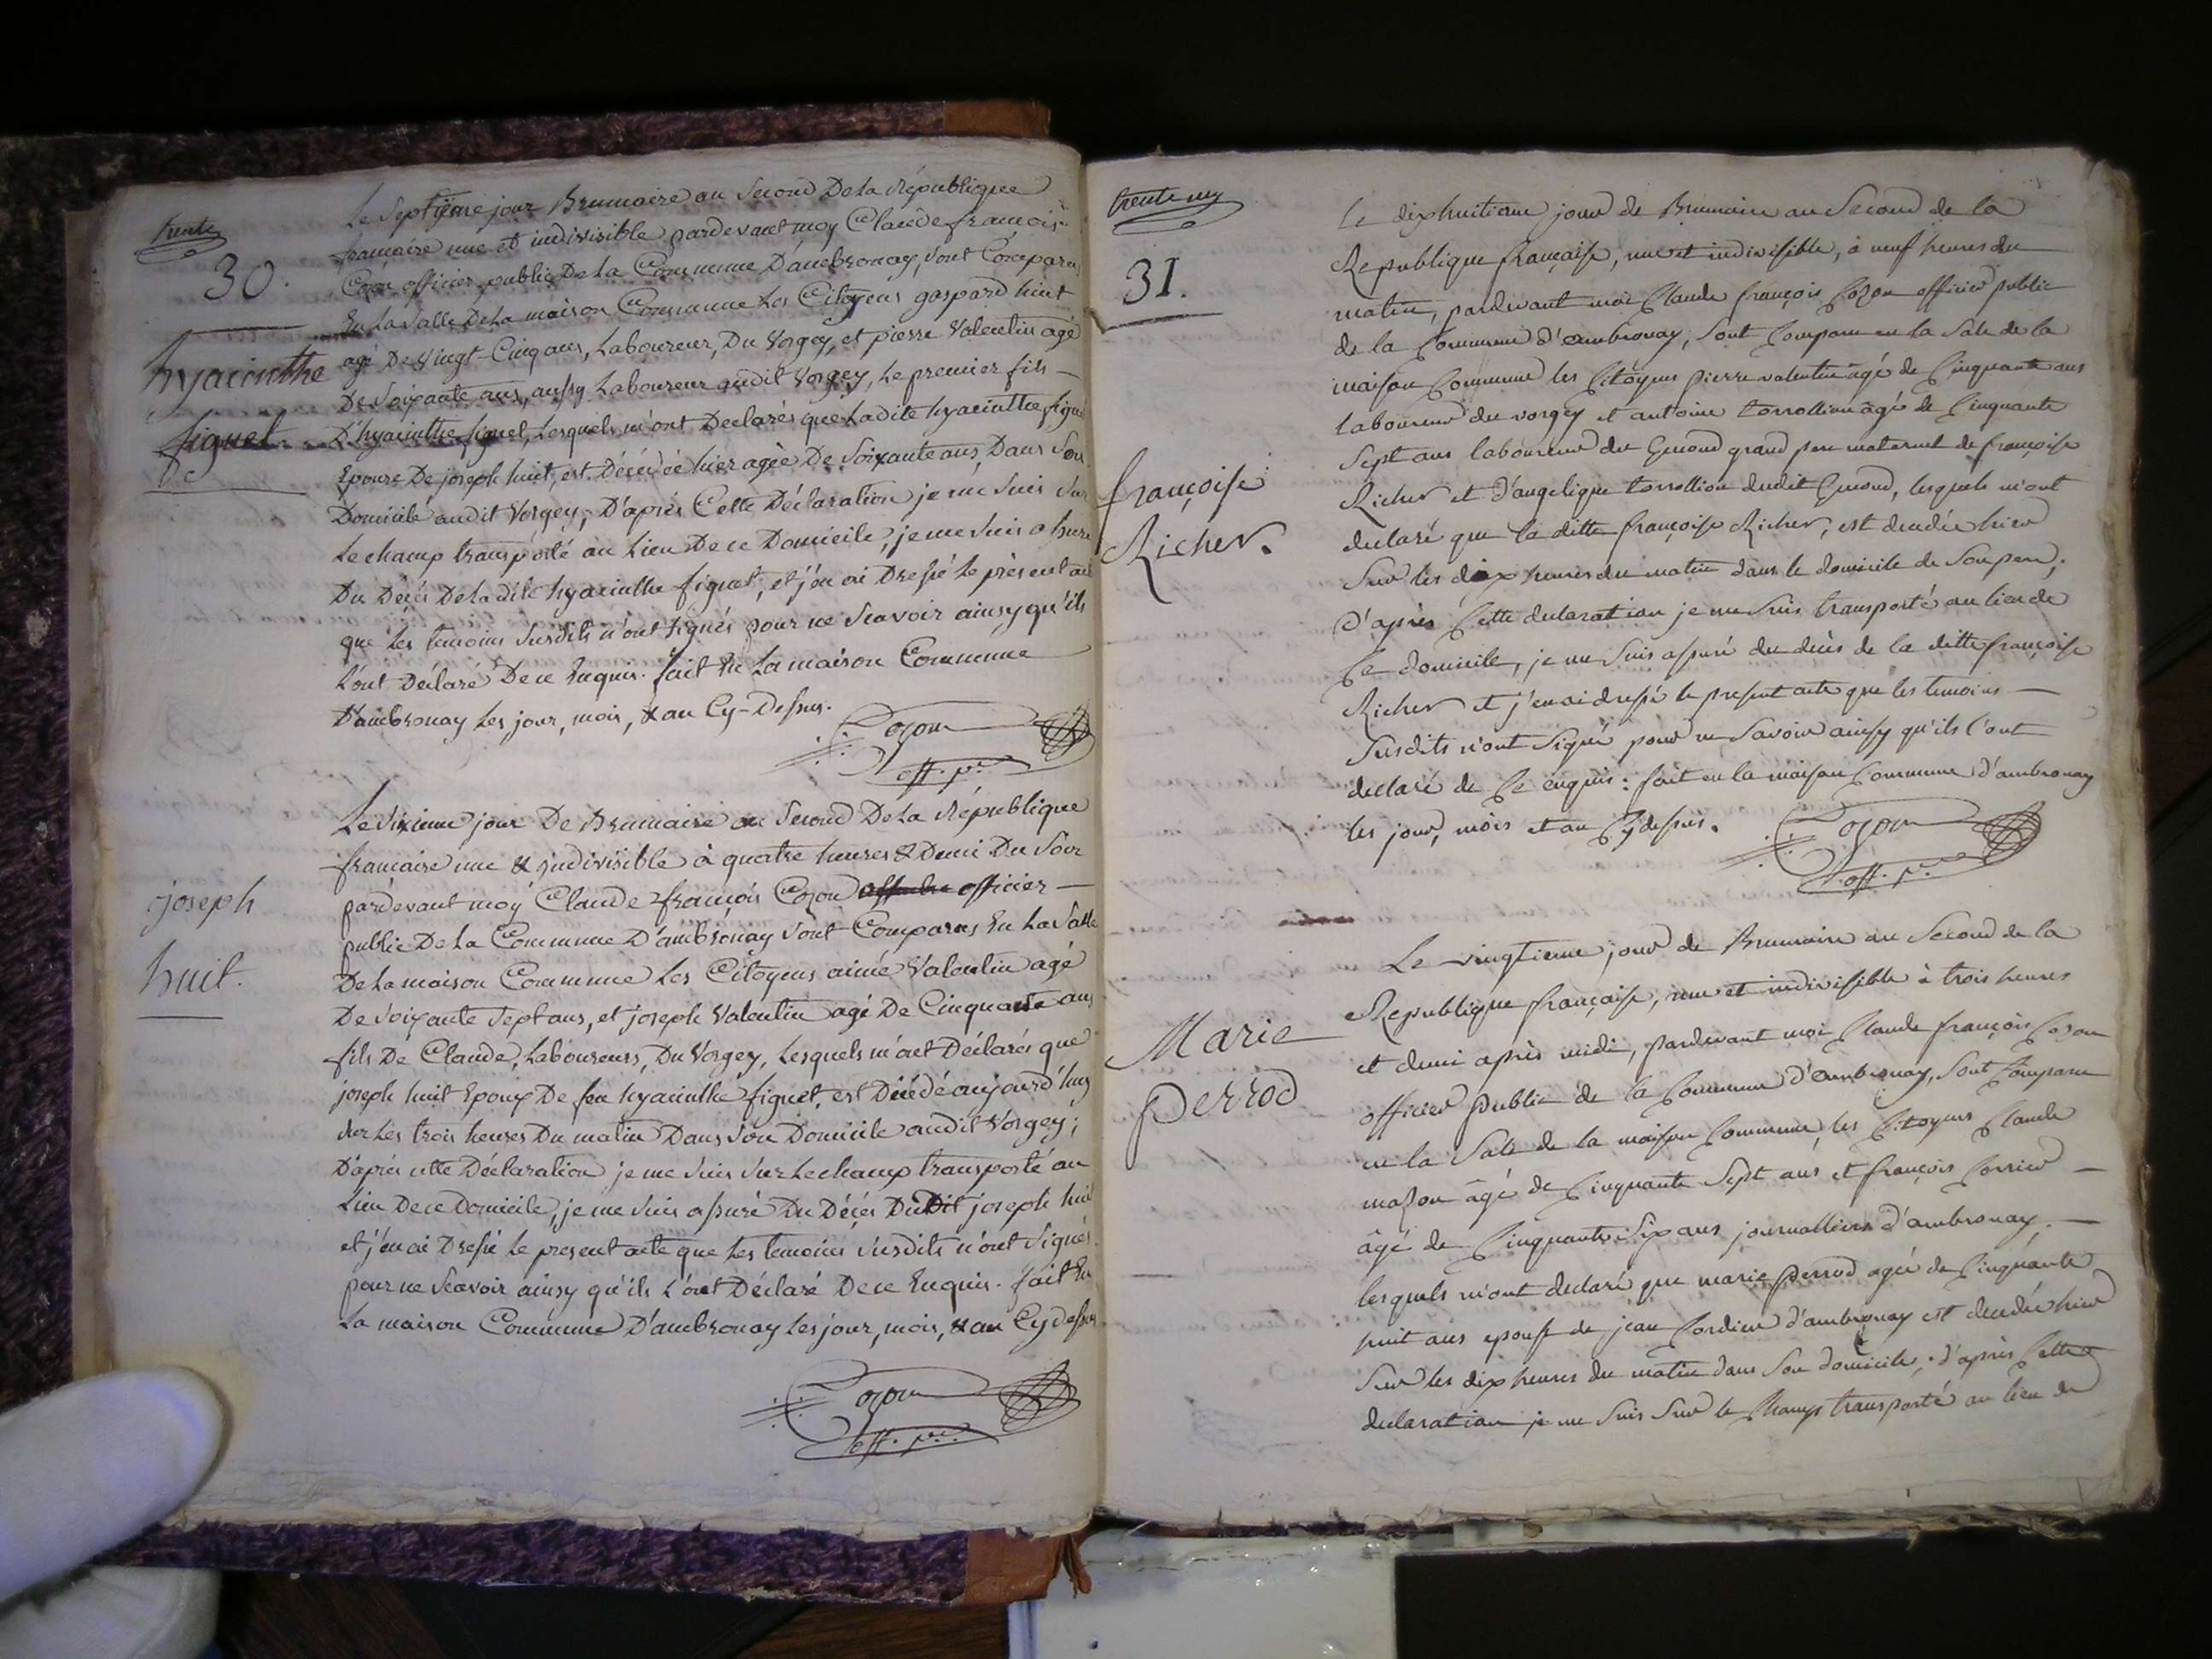 trente
30.
hyacinthe
figuet
Le Septieme jour Brumaire an Second De la République
francaise une et indivisible pardevant moy Claude françois
Cozon officier public De la Commune D'ambronay, sont Comparus
En La Salle De la maison Commune Les Citoyens gaspard huit
agé De vingt-Cinq ans, Laboureur, Du Vorgey, et pierre Valentin agé
De Soixante ans, aussy Laboureur audit Vorgey, Le premier fils —
D'hyacinthe figuet, Lesquels m'ont Declarés que Ladite hyacinthe figuet
Epouse De joseph huit, est Décédée hier agée De Soixante ans, Dans Son
Domicile audit Vorgey; D'aprés Cette Déclaration je me suis sur
Le champ transporté au Lieu De ce Domicile, je me suis assuré
Du Décés De Ladite hyacinthe figuet, et j'en ai Dressé Le présent acte
que Les temoins Susdits n'ont signés pour ne Scavoir ainsy qu'ils
L'ont Déclaré De ce Enquis. fait En La maison Commune
D'ambronay Les jour, mois, & an Cy-Dessus.
Cozon
off. p.
joseph
huit.
Le Sixieme jour De Brumaire an Second De La République
francaise une & indivisible à quatre heures & Demi Du Soir
pardevant moy Claude françois Cozon officier —
public De La Commune D'ambronay sont Comparus En La Salle
De La maison Commune Les Citoyens aimé Valentin agé
De Soixante Sept ans, et joseph Valentin agé De Cinquante ans
fils De Claude, Laboureurs, Du Vorgey, Lesquels m'ont Déclarés que
joseph huit Epoux De feu hyacinthe figuet, est Décédé aujourd'huy
sur Les trois heures Du matin Dans Son Domicile audit Vorgey;
D'aprés cette Déclaration je me suis sur Le champ transporté au
Lieu De ce Domicile, je me suis assuré Du Décés Dudit joseph huit
et j'en ai Dressé Le present acte que Les temoins susdits n'ont signés
pour ne Scavoir ainsy qu'ils L'ont Déclaré De ce Enquis. fait En
La maison Commune D'ambronay Les jour, mois, & an Cy dessus
Cozon
off. p.
trente un
31.
françoise
Richer.
Le dixhuitieme jour de Brumaire an Second de la
Republique française, une et indivisible, à neuf heures du
matin, pardevant moi Claude françois Cozon officier public
de la Commune d'ambronay, sont Comparu en la Sale de la
maison Commune les Citoyens pierre valentin âgé de Cinquante ans
laboureur du vorgey et antoine torrollion âgé de Cinquante
Sept ans laboureur du Genoud grand pere maternel de françoise
Richer et d'angelique torrollion dudit Genoud, lesquels m'ont
declaré que la ditte françoise Richer, est decedée hier
Sur les dix heures du matin dans le domicile de Son pere;
d'après Cette declaration je me Suis transporté au lieu de
Ce domicile, je me suis assuré du decès de la ditte françoise
Richer et j'en ai dressé le present acte que les temoins —
Susdits n'ont Signé pour ne Savoir ainsy qu'ils l'ont
declaré de Ce enquis: fait en la maison Commune d'ambronay
les jour, mois et an Cy dessus.
Cozon
off. p.
Marie
perrod
Le vingtieme jour de Brumaire an Second de la
Republique française, une et indivisible à trois heures
et demi après midi, pardevant moi Claude françois Cozon
officier public de la Commune d'ambronay, sont Comparu
en la Sale de la maison Commune, les Citoyens Claude
mazon âgé de Cinquante Sept ans et françois Corrier —
âgé de Cinquante Six ans journalliers d'ambronay. —
lesquels m'ont declaré que marie perrod agée de Cinquante
huit ans epouse de jean Cordier d'ambronay est decedée hier
Sur les dix heures du matin dans Son domicile; d'après Cette
declaration je me Suis Sur le Champ transporté au lieu de